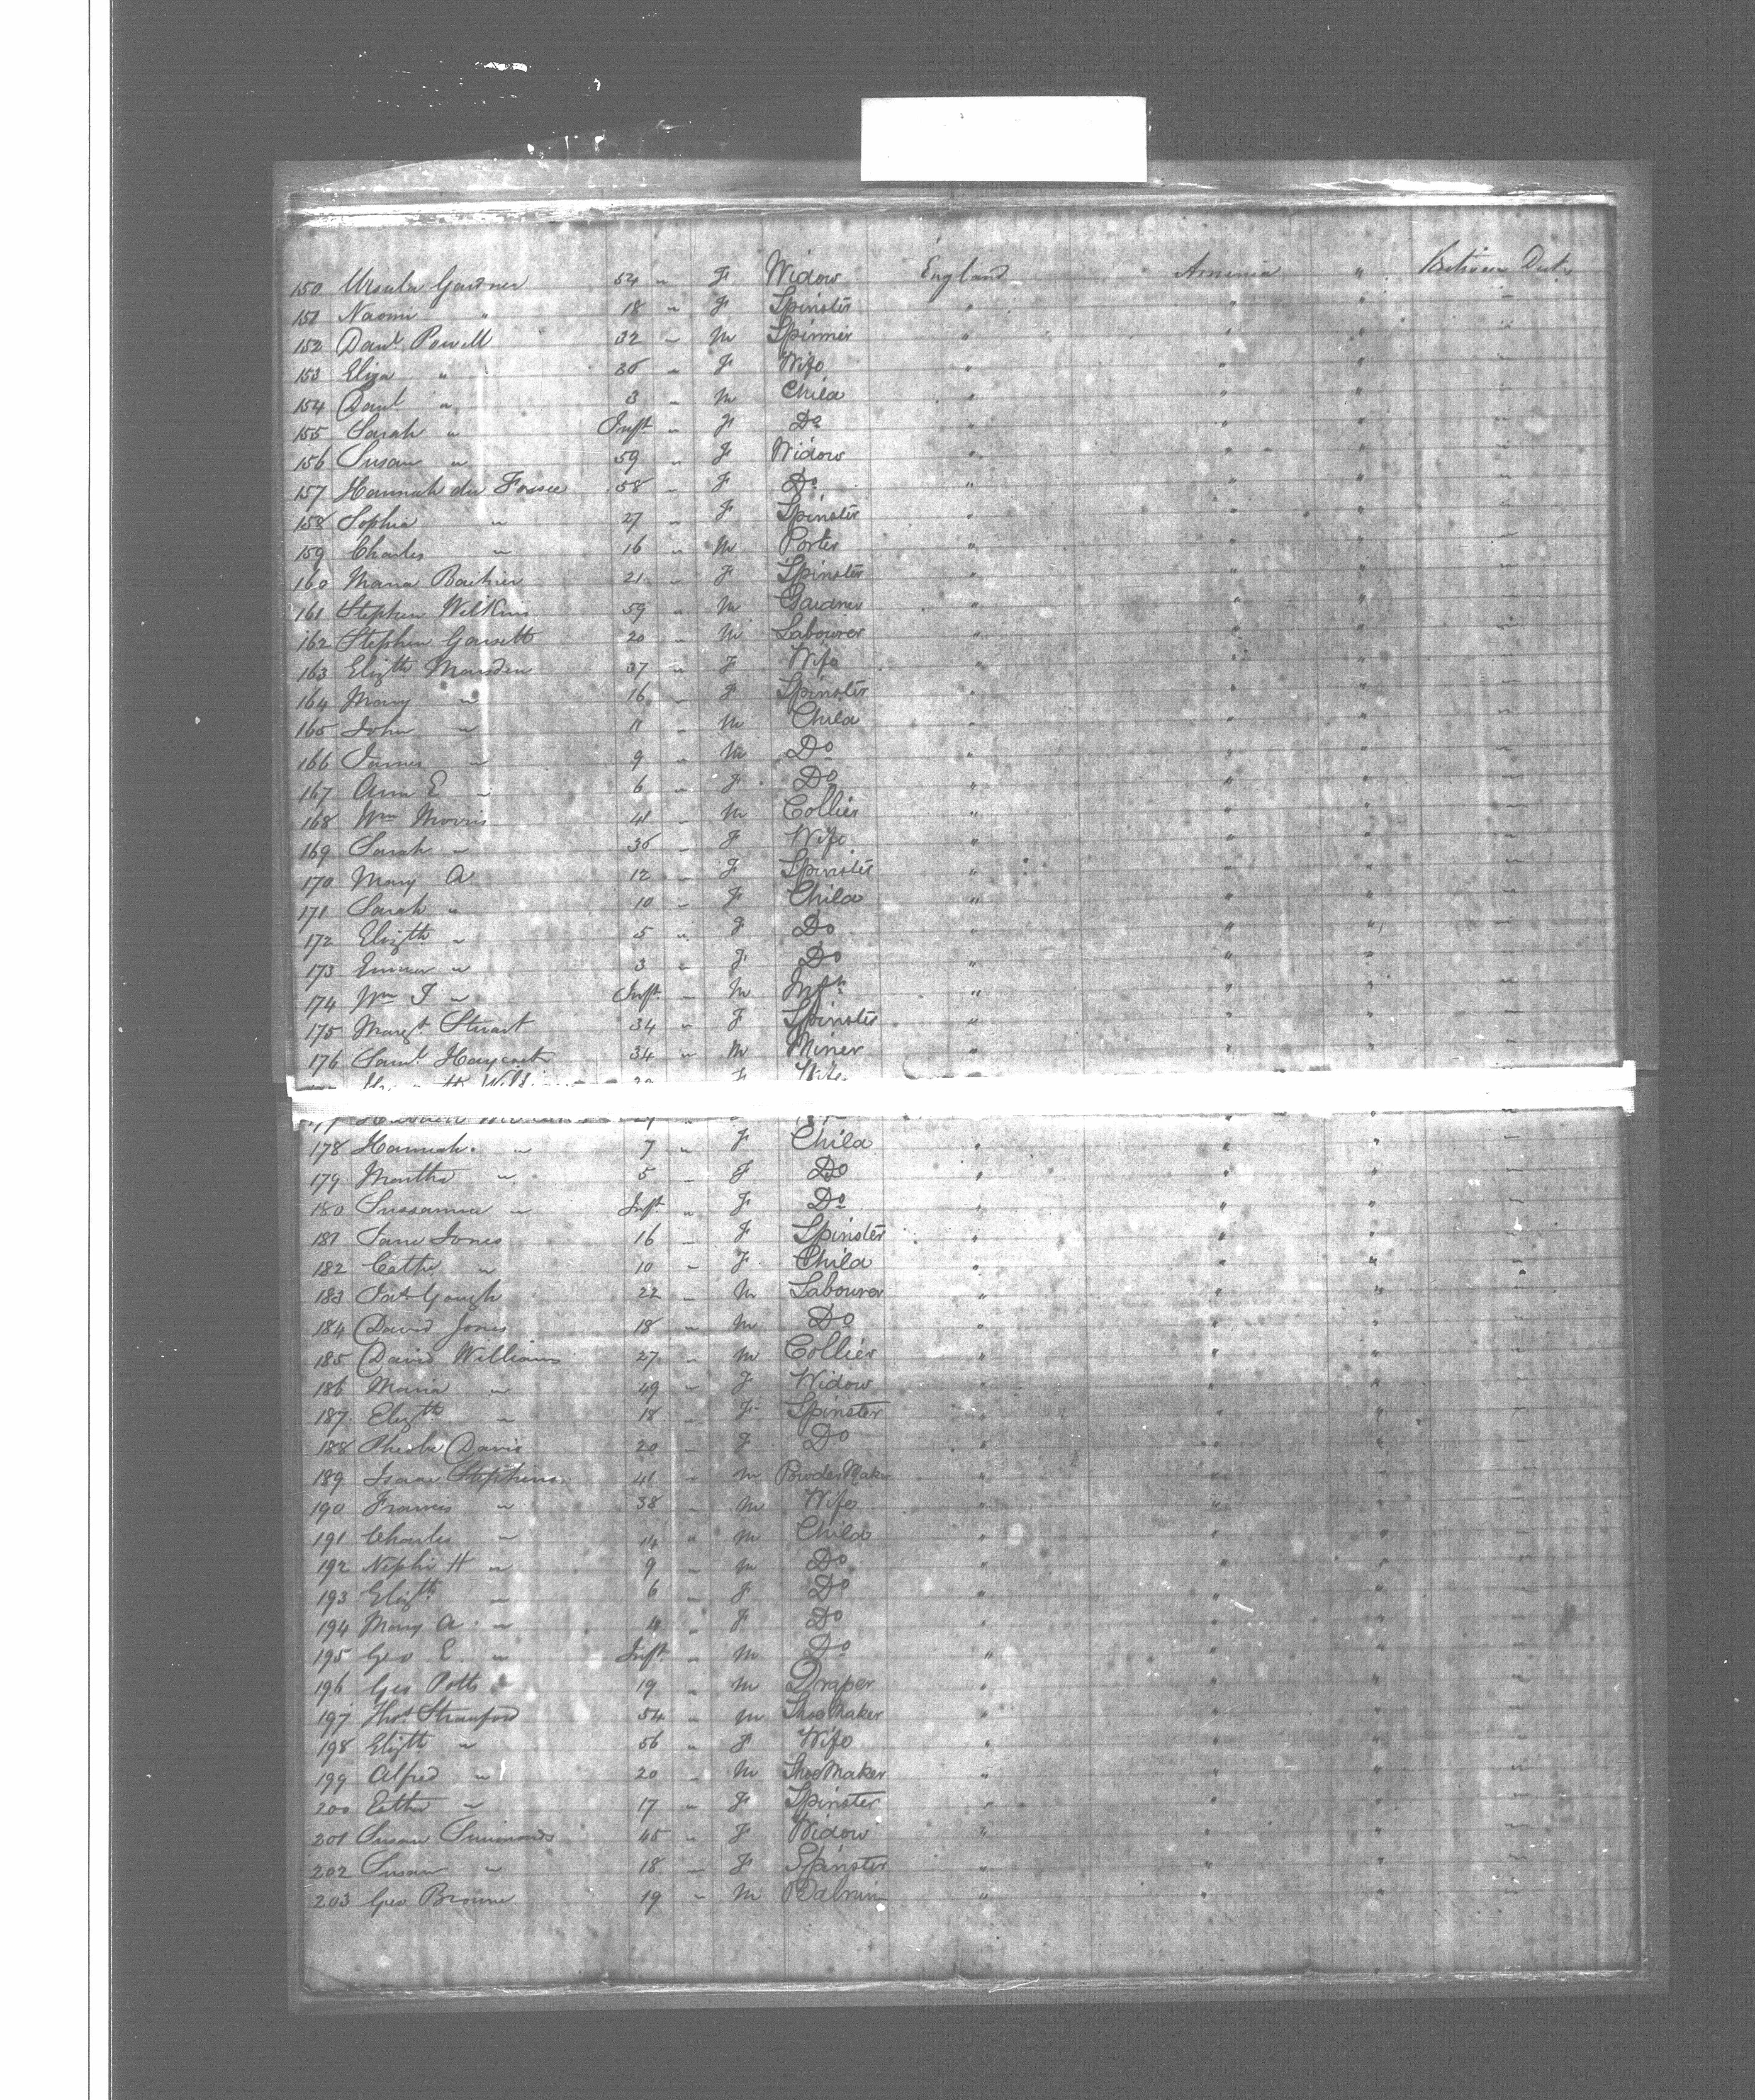 150 Ursula Gardner 54 " F Widow England America " Between Decks
151 Naomi " 18 " F Spinster " " " "
152 Danl. Powell 32 " M Spinner " " " "
153 Eliza " 36 " F Wife " " " "
154 Danl " 3 " M Child " " " "
155 Sarah " Inft " F Do " " " "
156 Susan " 59 " F Widow " " " "
157 Hannah du Fossee 58 " F Do " " " "
158 Sophia " 27 " F Spinster " " " "
159 Charles " 16 " M Porter " " " "
160 Maria 21 " F Spinster " " " "
161 Stephen Wilkins 59 " M Gardner " " " "
162 Stephen 20 " M Labourer " " " "
163 Elizth Marsden 37 " F Wife " " " "
164 Mary " 16 " F Spinster " " " "
165 John " 11 " M Child " " " "
166 James " 9 " M Do " " " "
167 Ann E " 6 " F Do " " " "
168 Wm Morris 41 " M Collier " " " "
169 Sarah " 36 " F Wife " " " "
170 Mary A 12 " F Spinster " " " "
171 Sarah " 10 " F Child " " " "
172 Elizth " 5 " F Do " " " "
173 Emma " 3 " F Do " " " "
174 Wm J " Inft " M " " " "
175 Margt. Stuart 34 " F Spinster " " " "
176 Saml. Haycock 34 " M Miner " " " "
178 Hannah " 7 " F Child " " " "
179 Martha " 5 " F Do " " " "
180 Sussanna " Inft " F Do " " " "
181 Jane Jones 16 " F Spinster " " " "
182 Cathe " 10 " F Child " " " "
183 Gough 22 " M Labourer " " " "
184 David Jones 18 " M Do " " " "
185 David Williams 27 " M Collier " " " "
186 Maria " 49 " F Widow " " " "
187 Elizth " 18 " F Spinster " " " "
188 Pheobe Davis 20 " F Do " " " "
189 Isaac Stephens 41 " M Powder Maker " " " "
190 Francis " 38 " M Wife " " " "
191 Charles " 14 " M Child " " " "
192 Nephi H " 9 " M Do " " " "
193 Elizth " 6 " F Do " " " "
194 Mary A " 4 " F Do " " " "
195 Geo E. " Inft " M Do " " " "
196 Geo Potts 19 " M Draper " " " "
197 Thos Stranford 54 " M Shoe Maker " " " "
198 Elizth " 56 " F Wife " " " "
199 Alfred " 20 " M Shoe Maker " " " "
200 Esther " 17 " F Spinster " " " "
201 Susan Simmonds 45 " F Widow " " " "
202 Susan " 18 " F Spinster " " " "
203 Geo Browne 19 " M " " " "